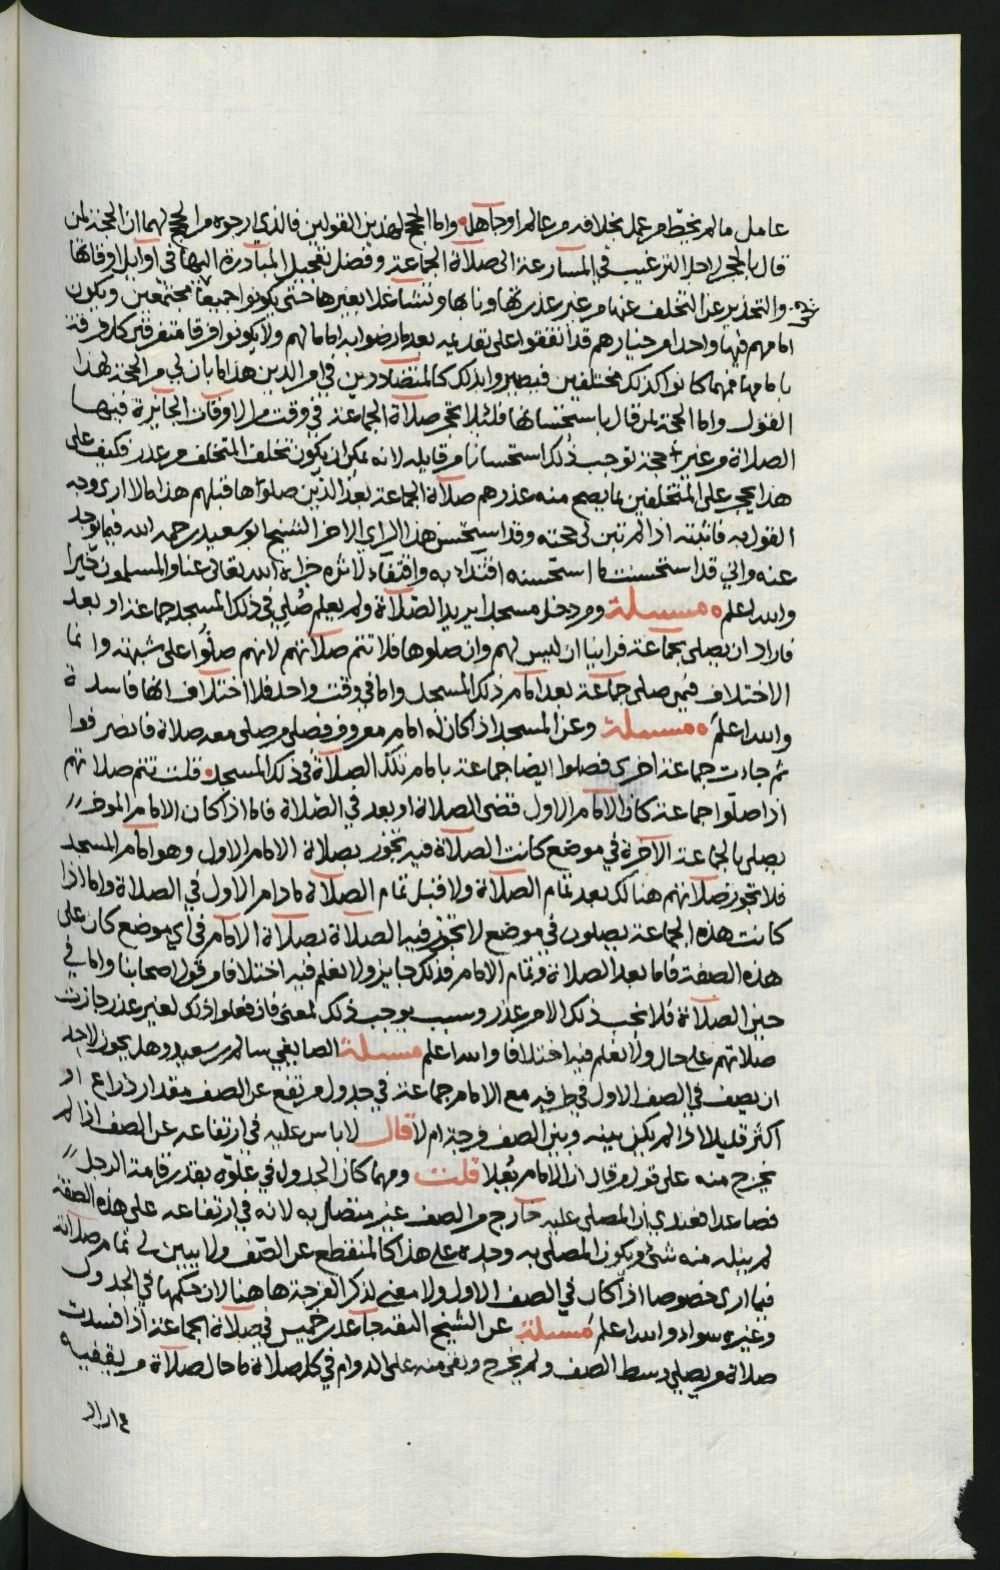 عامل ما لم يخطّ من عمل بخلافه من عالم او جاهل واما الحجج لهذين القولين فالذي ارجوه من الحجج لهما ان الحجة لمن
قال بالحجر لاجل الترغيب في المسارعة الى صلاة الجماعة وفضل تعجيل المبادرة اليها في اوايل اوقاتها
والتحذير عن التخلف عنها من غير عذر تهاونا بها وتشاغلا بغيرها حتى يكونوا جميعا مجتمعين ويكون
امامهم فيها واحدا من خيارهم قد اتفقوا على تقديمه بعد ما رضوا به اماما لهم ولا يكونوا فرقا متفرقين كل فرقة
بامامها فمهما كانوا كذلك مختلفين فيصيروا بذلك كالمتضاددين في امر الدين هذا ما بان لي من الحجة لهذا
القول واما الحجة لمن قال باستحسانها فلئلا تحجر صلاة الجماعة في وقت من الاوقات الجايزة فيها
الصلاة من غير حجة توجب ذلك استحسانا من قايله لانه يمكن ان يكون تخلف المتخلف من عذر فكيف على
هذا يحجر على المتخلفين بما يصح منه عذرهم صلاة الجماعة بعد الذين صلوها قبلهم هذا ما لا ارى وجه
القول به فاثبته اذا لم تبن لي حجته وقد استحسن هذا الراي الاخر الشيخ ابو سعيد رحمه الله فيما يوجد
عنه واني قد استحسنت ما استحسنه اقتداء به واقتفاء لاثره جزاه الله تعالى عنا والمسلمون خيرا
والله اعلم مسئلة ومن دخل مسجدا يريد الصلاة ولم يعلم صُلي في ذلك المسجد جماعة او بعد
فاراد ان يصلي بجماعة فراينا ان ليس لهم وان صلوها فلا تتم صلاتهم لانهم صلّوا على شبهة وانما
الاختلاف فيمن صلى جماعة بعد امام ذلك المسجد واما في وقت واحد فلا اختلاف انها فاسدة
والله اعلم مسئلة وعن المسجد اذا كان له امام معروف فصلى من صلى معه صلاة فانصرفوا
ثم جاءت جماعة اخرى فصلوا ايضا جماعة بامام تلك الصلاة في ذلك المسجد قلت تتم صلاتهم
اذا صلّوا جماعة كان الامام الاول قضى الصلاة او بعد في الصلاة فاما اذا كان الامام الموخر
يصلي بالجماعة الآخرة في موضع كانت الصلاة فيه تجوز بصلاة الامام الاول وهو امام المسجد
فلا تجوز صلاتهم هنالك بعد تمام الصلاة ولا قبل تمام الصلاة ما دام الاول في الصلاة واما اذا
كانت هذه الجماعة يصلون في موضع لا تجوز فيه الصلاة بصلاة الامام في اي موضع كان على
هذه الصفة فاما بعد الصلاة وتمام الامام فذلك جايز ولا نعلم فيه اختلافا من قول اصحابنا واما في
حين الصلاة فلا نحب ذلك الا من عذر وسبب يوجب ذلك لمعنى فان فعلوا ذلك لغير عذر جازت
صلاتهم على حال ولا نعلم فيه اختلافا والله اعلم مسئلة الصايغي سالم بن سعيد وهل يجوز لاحد
ان يصف في الصف الاول في طرفيه مع الامام جماعة في جدول مرتفع عن الصف مقدار ذراع او
اكثر قليلا اذا لم يكن بينه وبين الصف فرجة ام لا قال لا باس عليه في ارتفاعه عن الصف اذا لم
يخرج منه على قول من قال ان الامام بُعيلا قلت ومهما كان الجدول في علوّه بقدر قامة الرجل
فصاعدا فعندي ان المصلي عليه خارج من الصف غير متصل به لانه في ارتفاعه على هذه الصفة
لم ينله منه شيء ويكون المصلي به وحده على هذا كالمنقطع عن الصف ولا يبين لي تمام صلاته
فيما ارى خصوصا اذا كان في الصف الاول ولا معنى لذكر الفرجة هاهنا لان حكمها في الجدول
وغيره سواء والله اعلم مسئلة عن الشيخ الثقة جاعد بن خميس في صلاة الجماعة اذا فسدت
صلاة من يصلي وسط الصف ولم يخرج وبقى منه على الدوام في كل صلاة ما حال صلاة من يقفيه